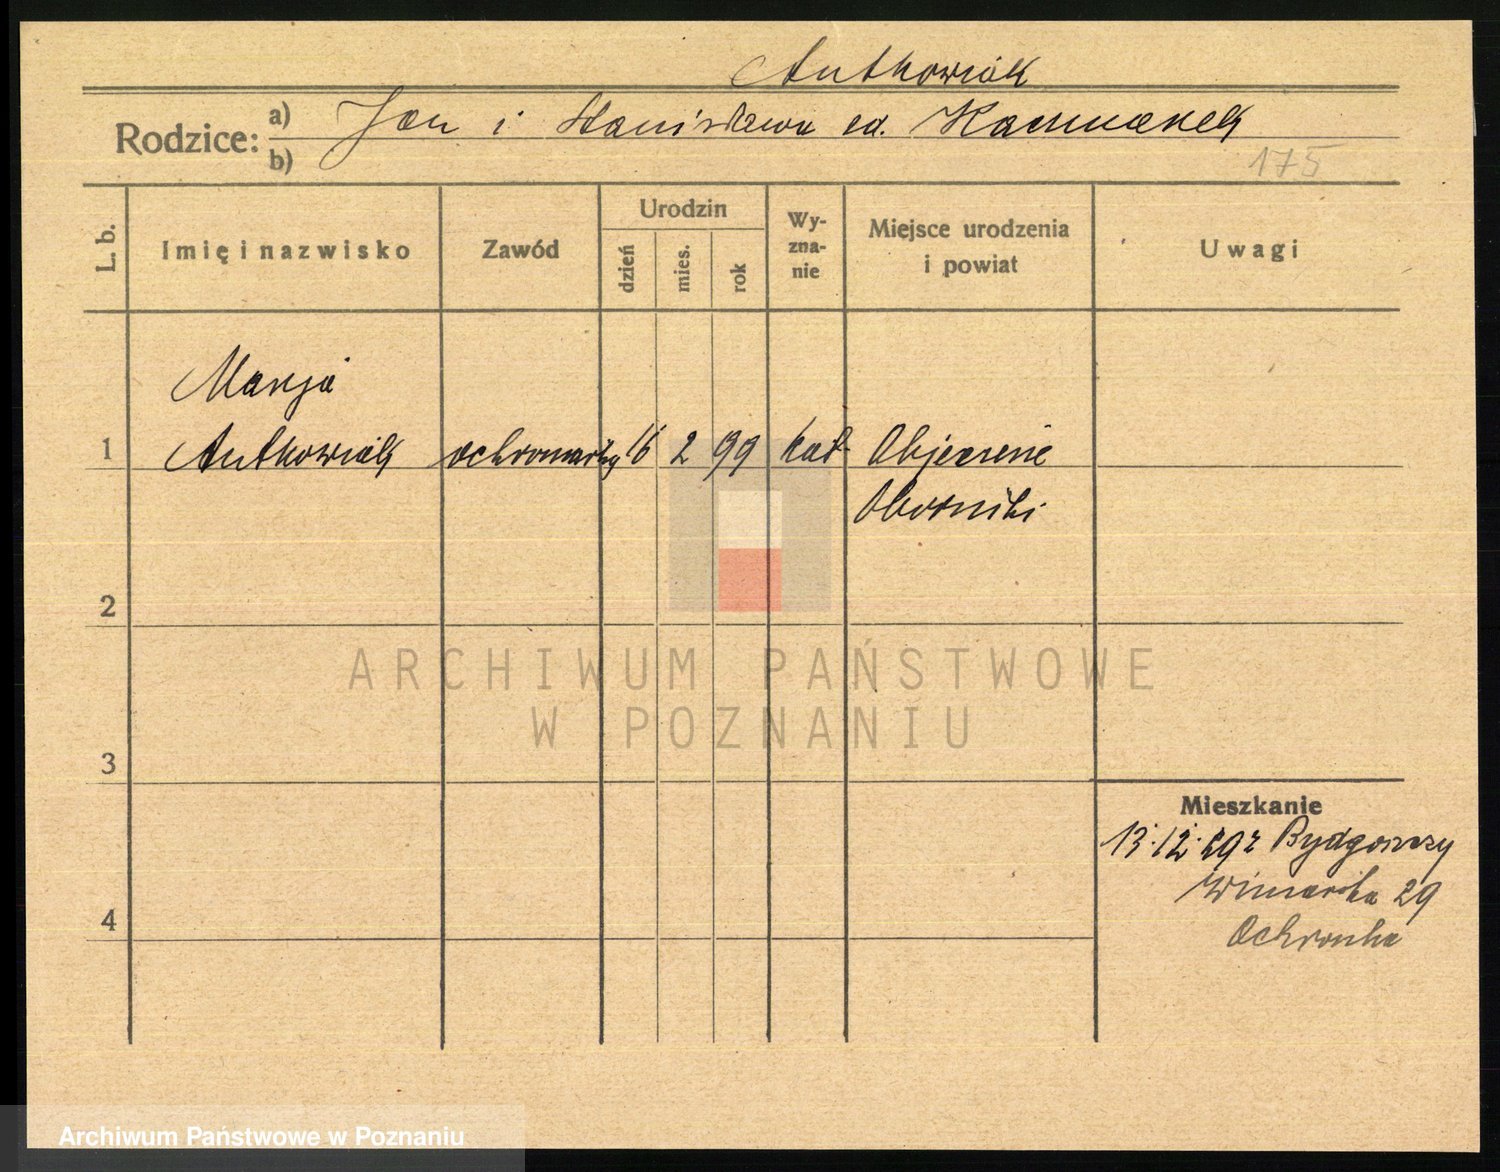 Antkowiak
Rodzice: a) Jan i Stanisława
b)
175
L. b.
Imię i nazwisko
Zawód
Urodzin
dzień
mies.
rok
Wy-
zna-
nie
Miejsce urodzenia
i powiat
Uwagi
Marja
1 Antkowiak 16 2 99 kat.
Oborniki
2
3
4
Mieszkanie
13.12.29 z Bydgoszczy
Winiarska 29
Ochronka
ARCHIWUM PAŃSTWOWE
W POZNANIU
Archiwum Państwowe w Poznaniu